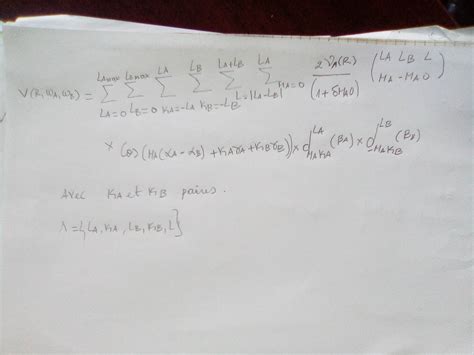 V(R, ω_A, ω_B) = \sum_{L_A=0}^{L_A max} \sum_{L_B=0}^{L_B max} \sum_{K_A=-L_A}^{L_A} \sum_{K_B=-L_B}^{L_B} \sum_{L=|L_A-L_B|}^{L_A+L_B} \sum_{M_A=0}^{L_A} \frac{2 V_Λ(R)}{(1+δ_{M_A 0})} \begin{pmatrix} L_A & L_B & L \\ M_A & -M_A & 0 \end{pmatrix}
× Cos(M_A(α_A - α_B) + K_A γ_A + K_B γ_B)) × d^{L_A}_{M_A K_A}(β_A) × d^{L_B}_{-M_A K_B}(β_B)
Avec K_A et K_B paires.
Λ = {L_A, K_A, L_B, K_B, L}